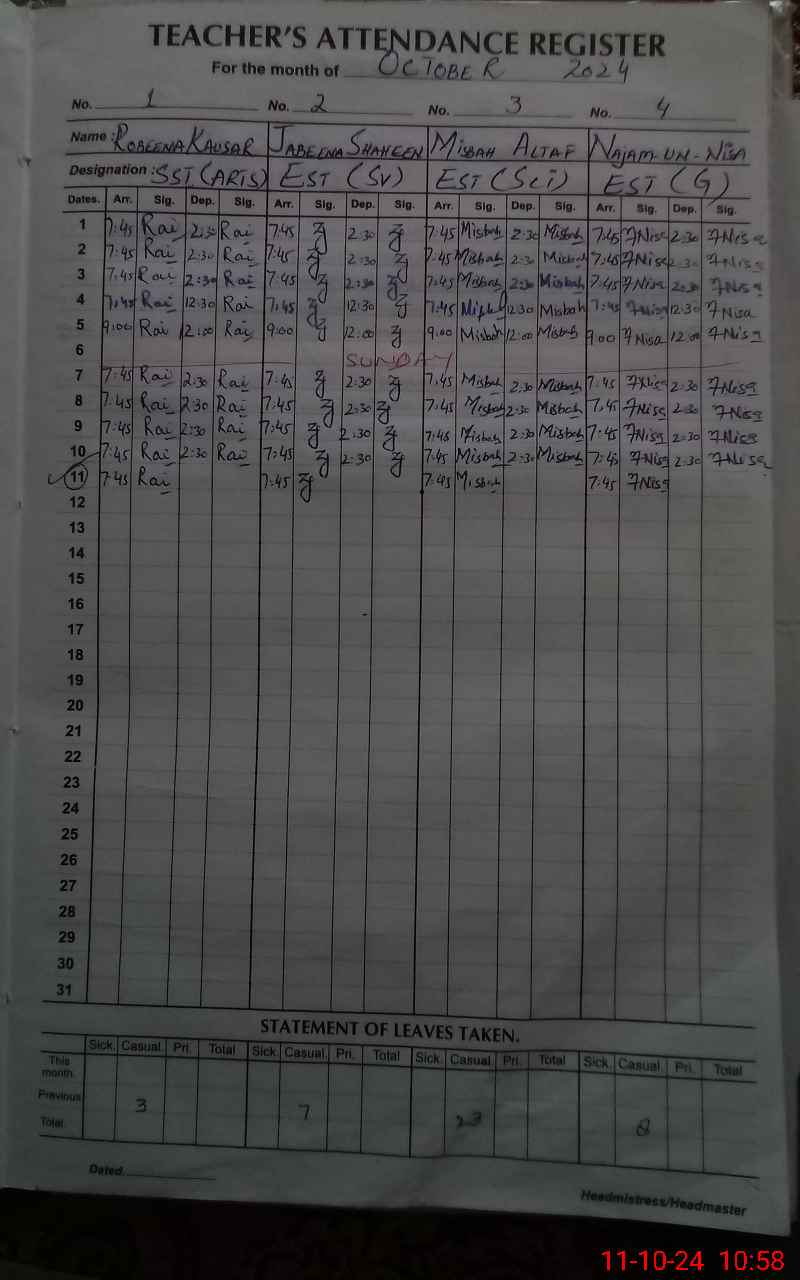 TEACHER'S ATTENDANCE REGISTER
For the month of OCTOBER 2024
No. 1 No. 2 No. 3 No. 4
Name: ROBEENA KAUSAR JABEENA SHAHEEN MISBAH ALTAF NAJAM-UN-NISA
Designation: SST (ARTS) EST (SV) EST (Sci) EST (G)
Dates. Arr. Sig. Dep. Sig. Arr. Sig. Dep. Sig. Arr. Sig. Dep. Sig. Arr. Sig. Dep. Sig.
1 7:45 Rai 2:30 Rai 7:45 2:30 7:45 Misbah 2:30 Misbah 7:45 7Nisa 2:30 7Nisa
2 7:45 Rai 2:30 Rai 7:45 2:30 7:45 Misbah 2:30 Misbah 7:45 7Nisa 2:30 7Nisa
3 7:45 Rai 2:30 Rai 7:45 2:30 7:45 Misbah 2:30 Misbah 7:45 7Nisa 2:30 7Nisa
4 7:45 Rai 12:30 Rai 7:45 12:30 7:45 12:30 Misbah 7:45 7Nisa 12:30 7Nisa
5 9:00 Rai 12:00 Rai 9:00 12:00 9:00 Misbah 12:00 Misbah 9:00 7Nisa 12:00 7Nisa
6 SUNDAY
7 7:45 Rai 2:30 Rai 7:45 2:30 7:45 Misbah 2:30 Misbah 7:45 7Nisa 2:30 7Nisa
8 7:45 Rai 2:30 Rai 7:45 2:30 7:45 Misbah 2:30 Misbah 7:45 7Nisa 2:30 7Nisa
9 7:45 Rai 2:30 Rai 7:45 2:30 7:45 Misbah 2:30 Misbah 7:45 7Nisa 2:30 7Nisa
10 7:45 Rai 2:30 Rai 7:45 2:30 7:45 Misbah 2:30 Misbah 7:45 7Nisa 2:30 7Nisa
11 7:45 Rai 7:45 7:45 Misbah 7:45 7Nisa
12
13
14
15
16
17
18
19
20
21
22
23
24
25
26
27
28
29
30
31
STATEMENT OF LEAVES TAKEN.
Sick. Casual. Pri. Total Sick. Casual. Pri. Total Sick. Casual Pri. Total Sick. Casual Pri. Total
This month.
Previous 3 7 23 8
Total.
Dated.
Headmistress/Headmaster
11-10-24 10:58